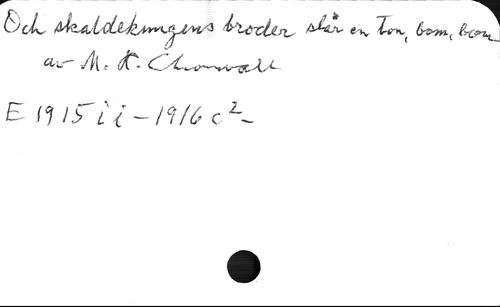 Och skaldekungens broder slår en ton, bom, bom
av M. K. Chorwall
E 1915 i i - 1916 c² -